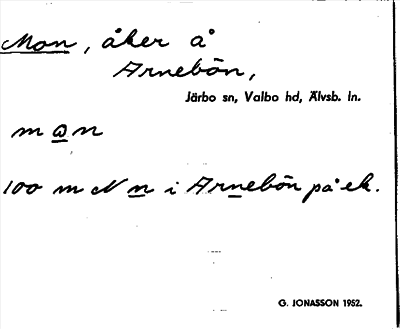 Mon, åker å
Arnebön,
Järbo sn, Valbo hd, Älvsb. ln.
man
100 m N n i Arnebön på ek.
G. JONASSON 1952.